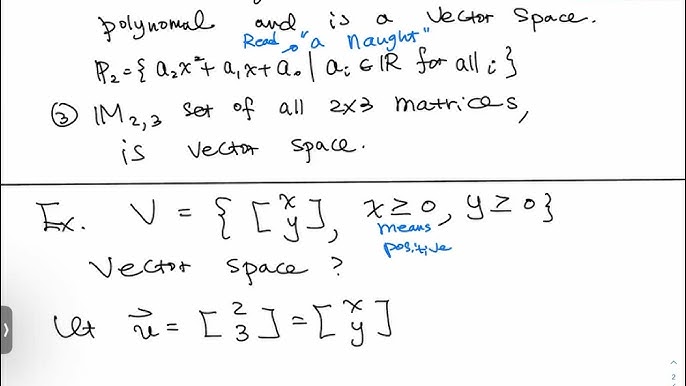 polynomal and is a vector space.
Read "a naught"
P₂ = { a₂x² + a₁x + a₀ | aᵢ ∈ ℝ for all i }
③ M₂,₃ set of all 2x3 matrices,
is vector space.
Ex. V = { [x y], x ≥ 0, y ≥ 0 }
means
positive
vector space ?
Let u⃗ = [2 3] = [x y]
2